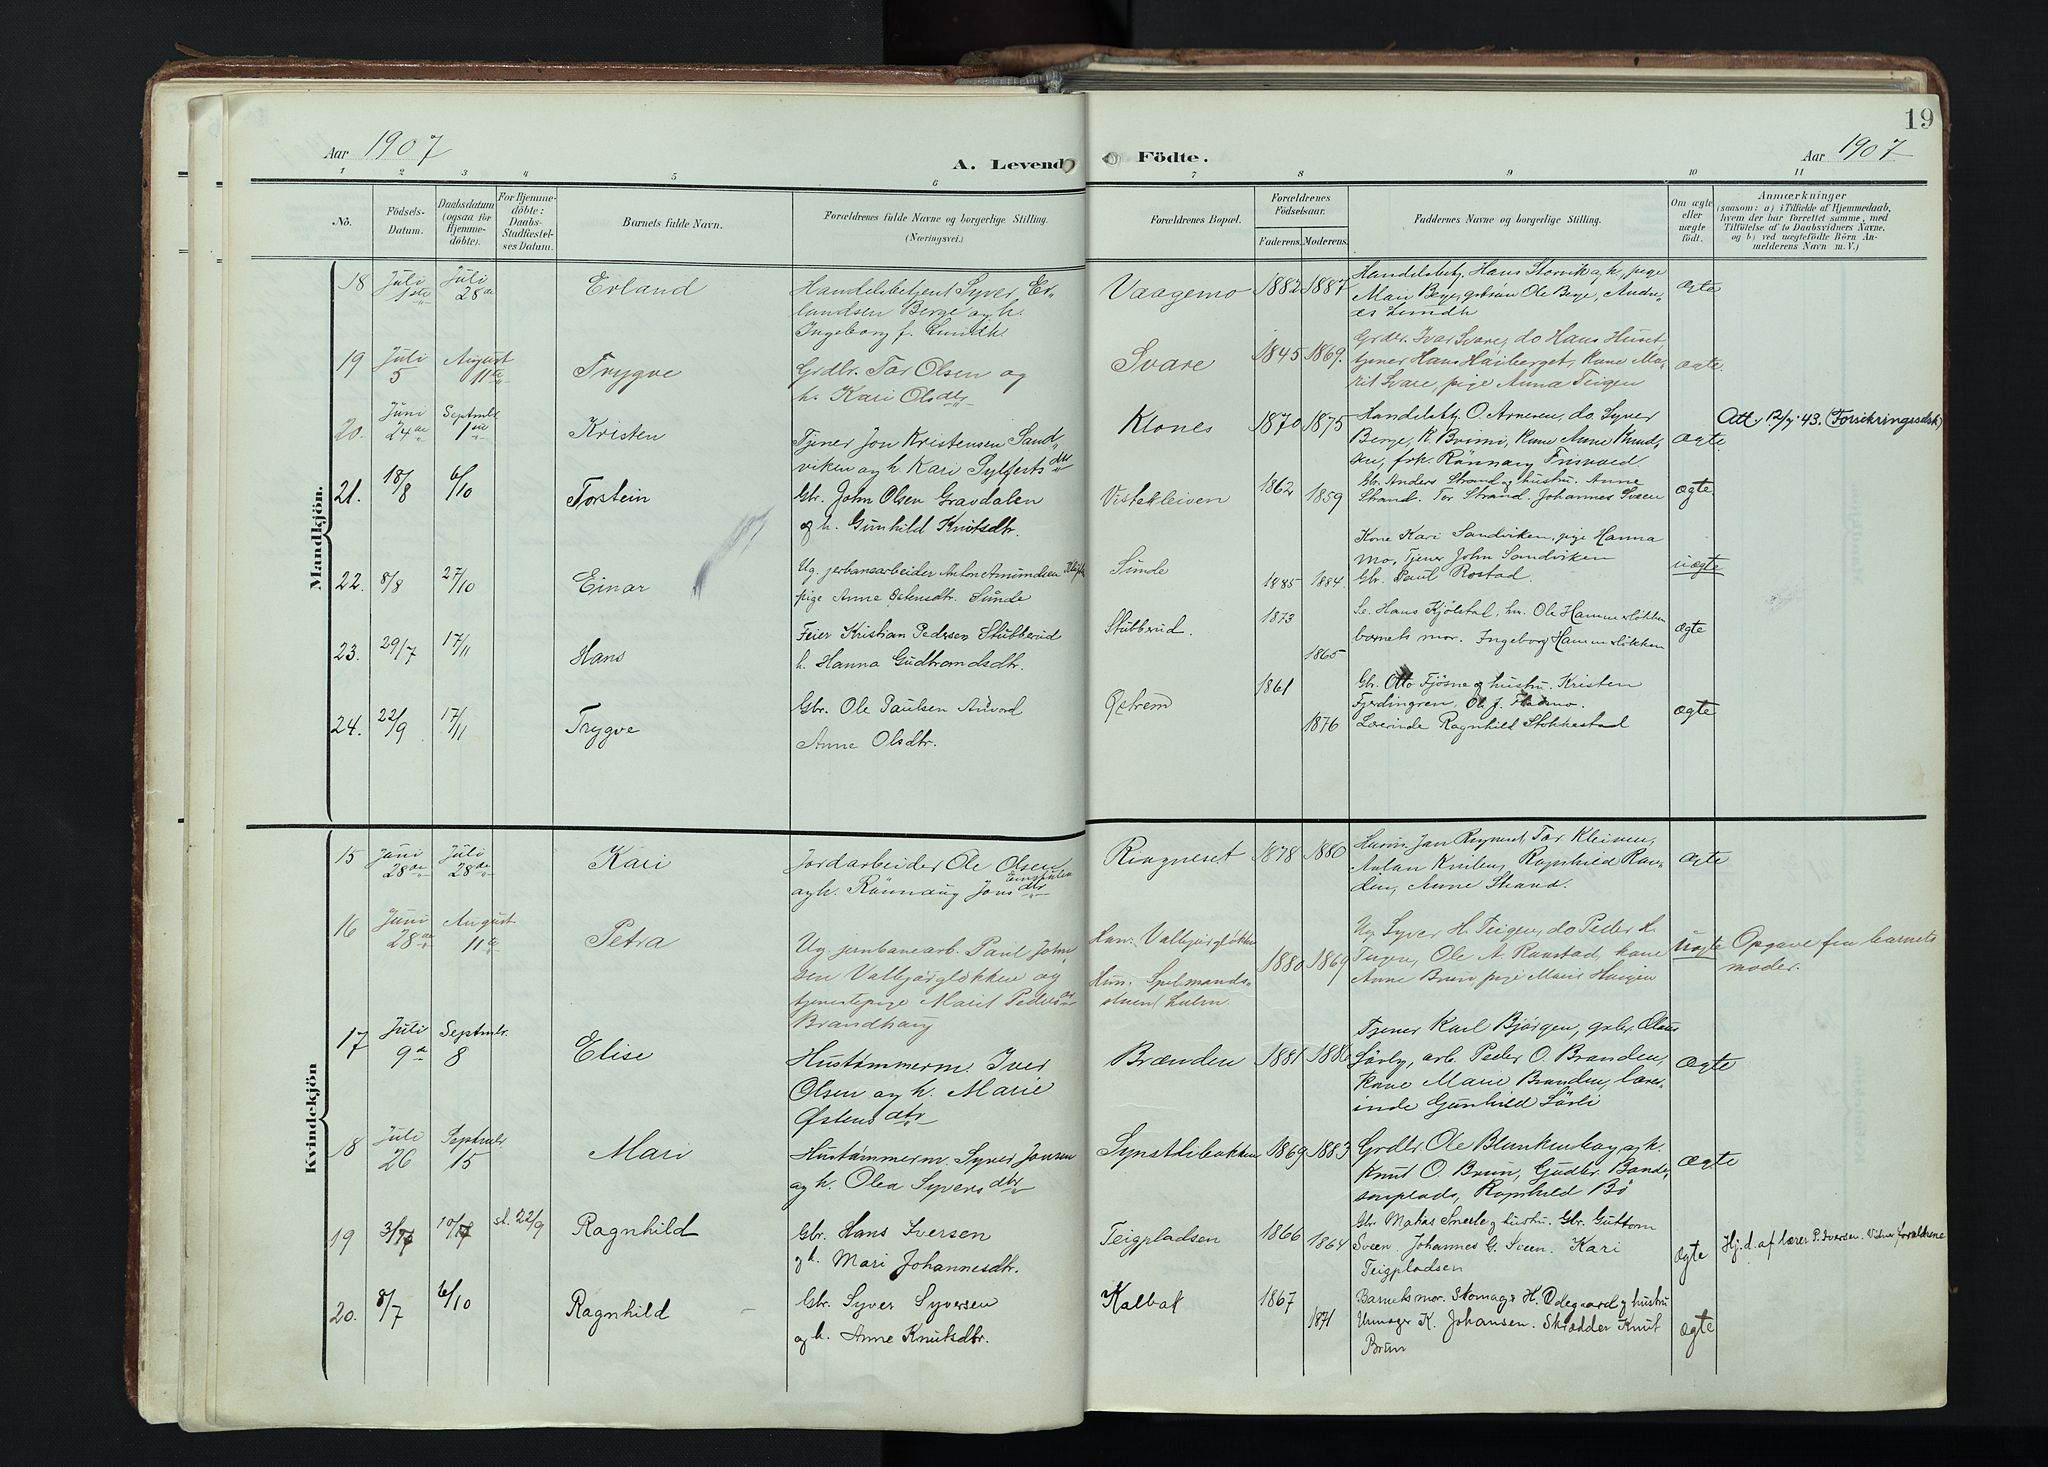 19
Aar 1907
A. Levende Födte.
Aar 1907
1 2 3 4 5 6 7 8 9 10 11
No.
Födsels-Datum.
Daabsdatum (ogsaa for Hjemmedöbte).
For Hjemmedöbte: Daabs-Stadfæstelses Datum.
Barnets fulde Navn.
Forældrenes fulde Navne og borgerlige Stilling. (Næringsvei.)
Forældrenes Bopæl.
Forældrenes Födselsaar.
Faderens. Moderens.
Faddernes Navne og borgerlige Stilling.
Om ægte eller uægte födt.
Anmærkninger
(saasom: a) i Tilfælde af Hjemmedaab, hvem der har forrettet samme, med Tilföielse af to Daabsvidners Navne, og b) ved uægtefödte Börn Anmelderens Navn m. V.)
Mandkjön.
18 Juli 1ste Juli 28de Erland
Handelsbetjent Syver Er-
landsen Berge og h.
Ingeborg f. Lundh.
Vaagemo 1882 1887
Handelsbetj. Hans Storvik og h., pige
Mari Berge, gebrsøn Ole Berge, Andre-
as Lundh
ægte
19 Juli 5 August 11te Trygve
Grdbr. Tor Olsen og
h. Kari Olsdtr
Svare 1845 1869.
Grdbr. Ivar Svare, do Hans Huset,
tjener Hans Haiberget, kone Ma-
rit Svare, pige Anna Teigen
ægte
20. Juni 24de Septmbr 1ste Kristen
Tjener Jon Kristensen Sand-
viken og h. Kari Sylfestsdtr
Klones 1870 1875
Handelsbtj. O. Arnesen, do. Syver
Berge, K. Brimi, kone Anne Knud-
sen, frk. Rønnaug Frisvold.
ægte
Att 12/7 43. (Forsikringsselsk)
21. 18/8 6/10 Torstein
Gbr. John Olsen Gravdalen
og h. Gunhild Knutsdtr.
Vistekleiven 1862 1859
Gbr. Anders Strand og hustru. Anne
Strand. Tor Strand. Johannes Sveen
ægte
22. 8/8 27/10 Einar
Ug. jernbanearbeider Anton Amundsen
pige Anne Østensdtr. Sunde
Sunde 1885 1884
Kone Kari Sandviken, pige Hanna
Mo, Tjener John Sandviken
Gbr. Paul Rostad.
uægte
23. 29/7 17/11 Hans
Feier Kristian Pedersen Stubberud
h. Hanna Gudbrandsdtr.
Stubberud. 1873 1865
Se. Hans Kjølstad, hu. Ole Hammerløkken
barnets mor. Ingeborg Hammerløkken
ægte
24. 22/9 17/11 Trygve
Gbr. Ole Paulsen
Anne Olsdtr.
Østrem 1861 1876
Gbr. Otto Fjøsne og hustru. Kristen
Fjerdingren, Ole J.
Lærerinde Ragnhild Stokkestad
ægte
Kvindekjön
15 Juni 28de Juli 28de Kari
Jordarbeider Ole Olsen
og h. Rønnaug Jonsdtr
Ringneset 1878 1880
Husm. Jan Ringneset, Tor Kleiven,
Anton Kvilen, Ragnhild Rav-
den, Anne Strand.
ægte
16 Juni 28de August 11te Petra
Ug. jernbanearb. Paul John-
sen Valbjørgløkken og
tjenestepige Marit Peders
Brandhaug
Han: Valbjørgløkken
Hun: Spelmands-
stuen 1880 1869
Ug. Syver H. Teigen, do Peder H.
Teigen, Ole A. Ranstad, kone
Anne Brun, pige Marie Haugen
Uægte
Opgave fra barnets
moder.
17 Juli 9de Septmbr. 8 Elise
Hustømmerm. Iver
Olsen og h. Marie
Østensdtr
Brænden 1881 1886
Tjener Karl Bjørgen, gebr. Olaus
Sørby, arb. Peder O. Branden,
kone Marie Branden, lærer-
inde Gunhild Sørli
Ægte
18 Juli 26 Septmbr 15 Mari
Hustømmerm. Syver Jonsen
og h. Olea Syversdtr
Synstlibakken 1869 1883
Grdbr Ole Blankenborg og h.
Knut O. Brun, Gudbr. Bande-
sonplads, Ragnhild Bø
Ægte
19 10/ st. 22/9 Ragnhild
Gbr. Hans Iversen
og h. Mari Johannesdtr.
Teigpladsen 1866 1864
Gbr Matias Snerle og hustru. Gbr. Guttorm
Sveen. Johannes G. Sveen. Kari
Teigpladsen
ægte
Hj.d. af lærer P. Iversen. Vidner forældrene
20. 8/7 6/10 Ragnhild
Gbr. Syver Syversen
og h. Anne Knutsdtr.
Kalbak 1867 1871
Barnets mor. Skomagr H. Ødegaard og hustru
Urmager K. Johansen. Skrædder Knut
Brun
ægte